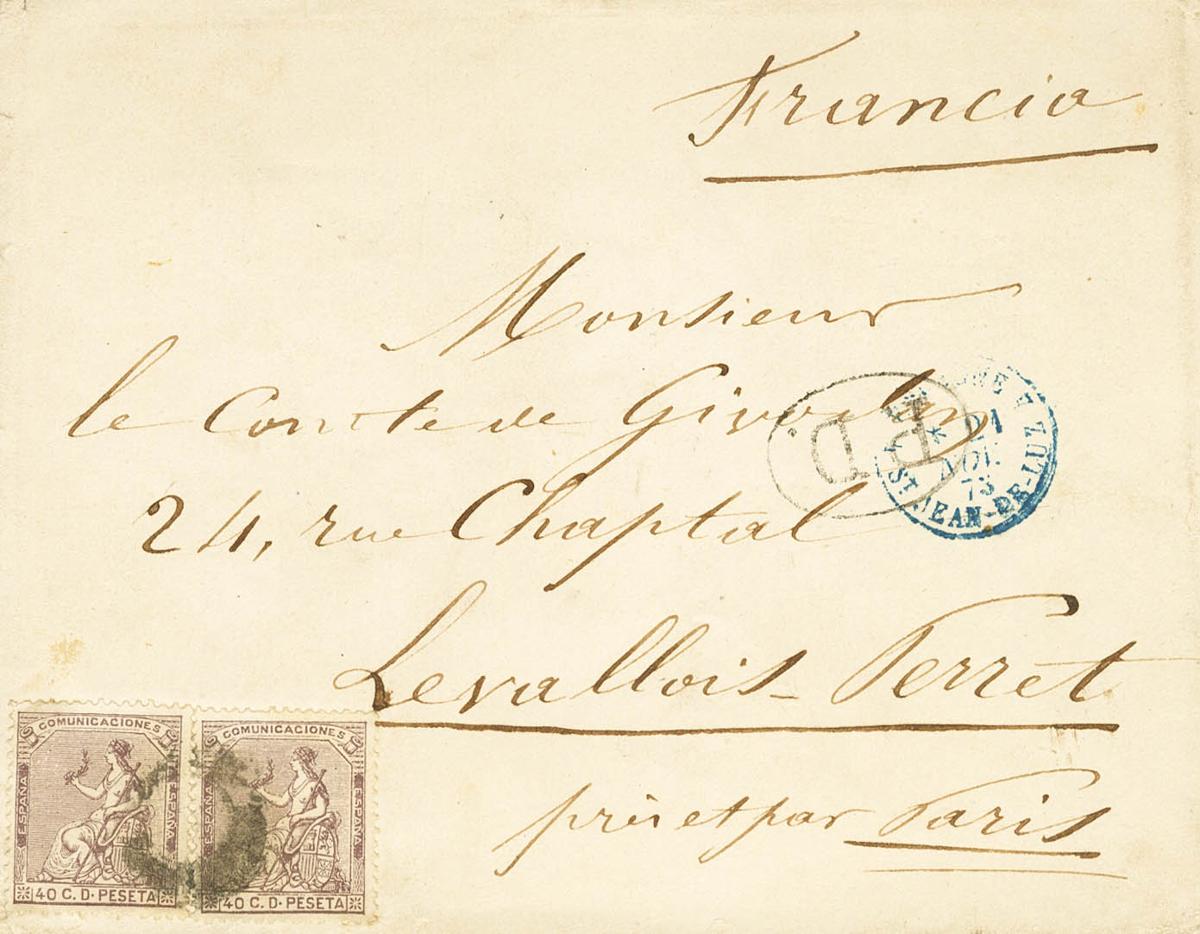 Francia
Monsieur
le Comte de
24, rue Chaptal
Levallois-Perret
près et par Paris
PD
ESPAGNE A
* 21
NOV.
73
ST JEAN-DE-LUZ
COMUNICACIONES
ESPAÑA
ESPAÑA
40 C. D. PESETA
COMUNICACIONES
ESPAÑA
ESPAÑA
40 C. D. PESETA